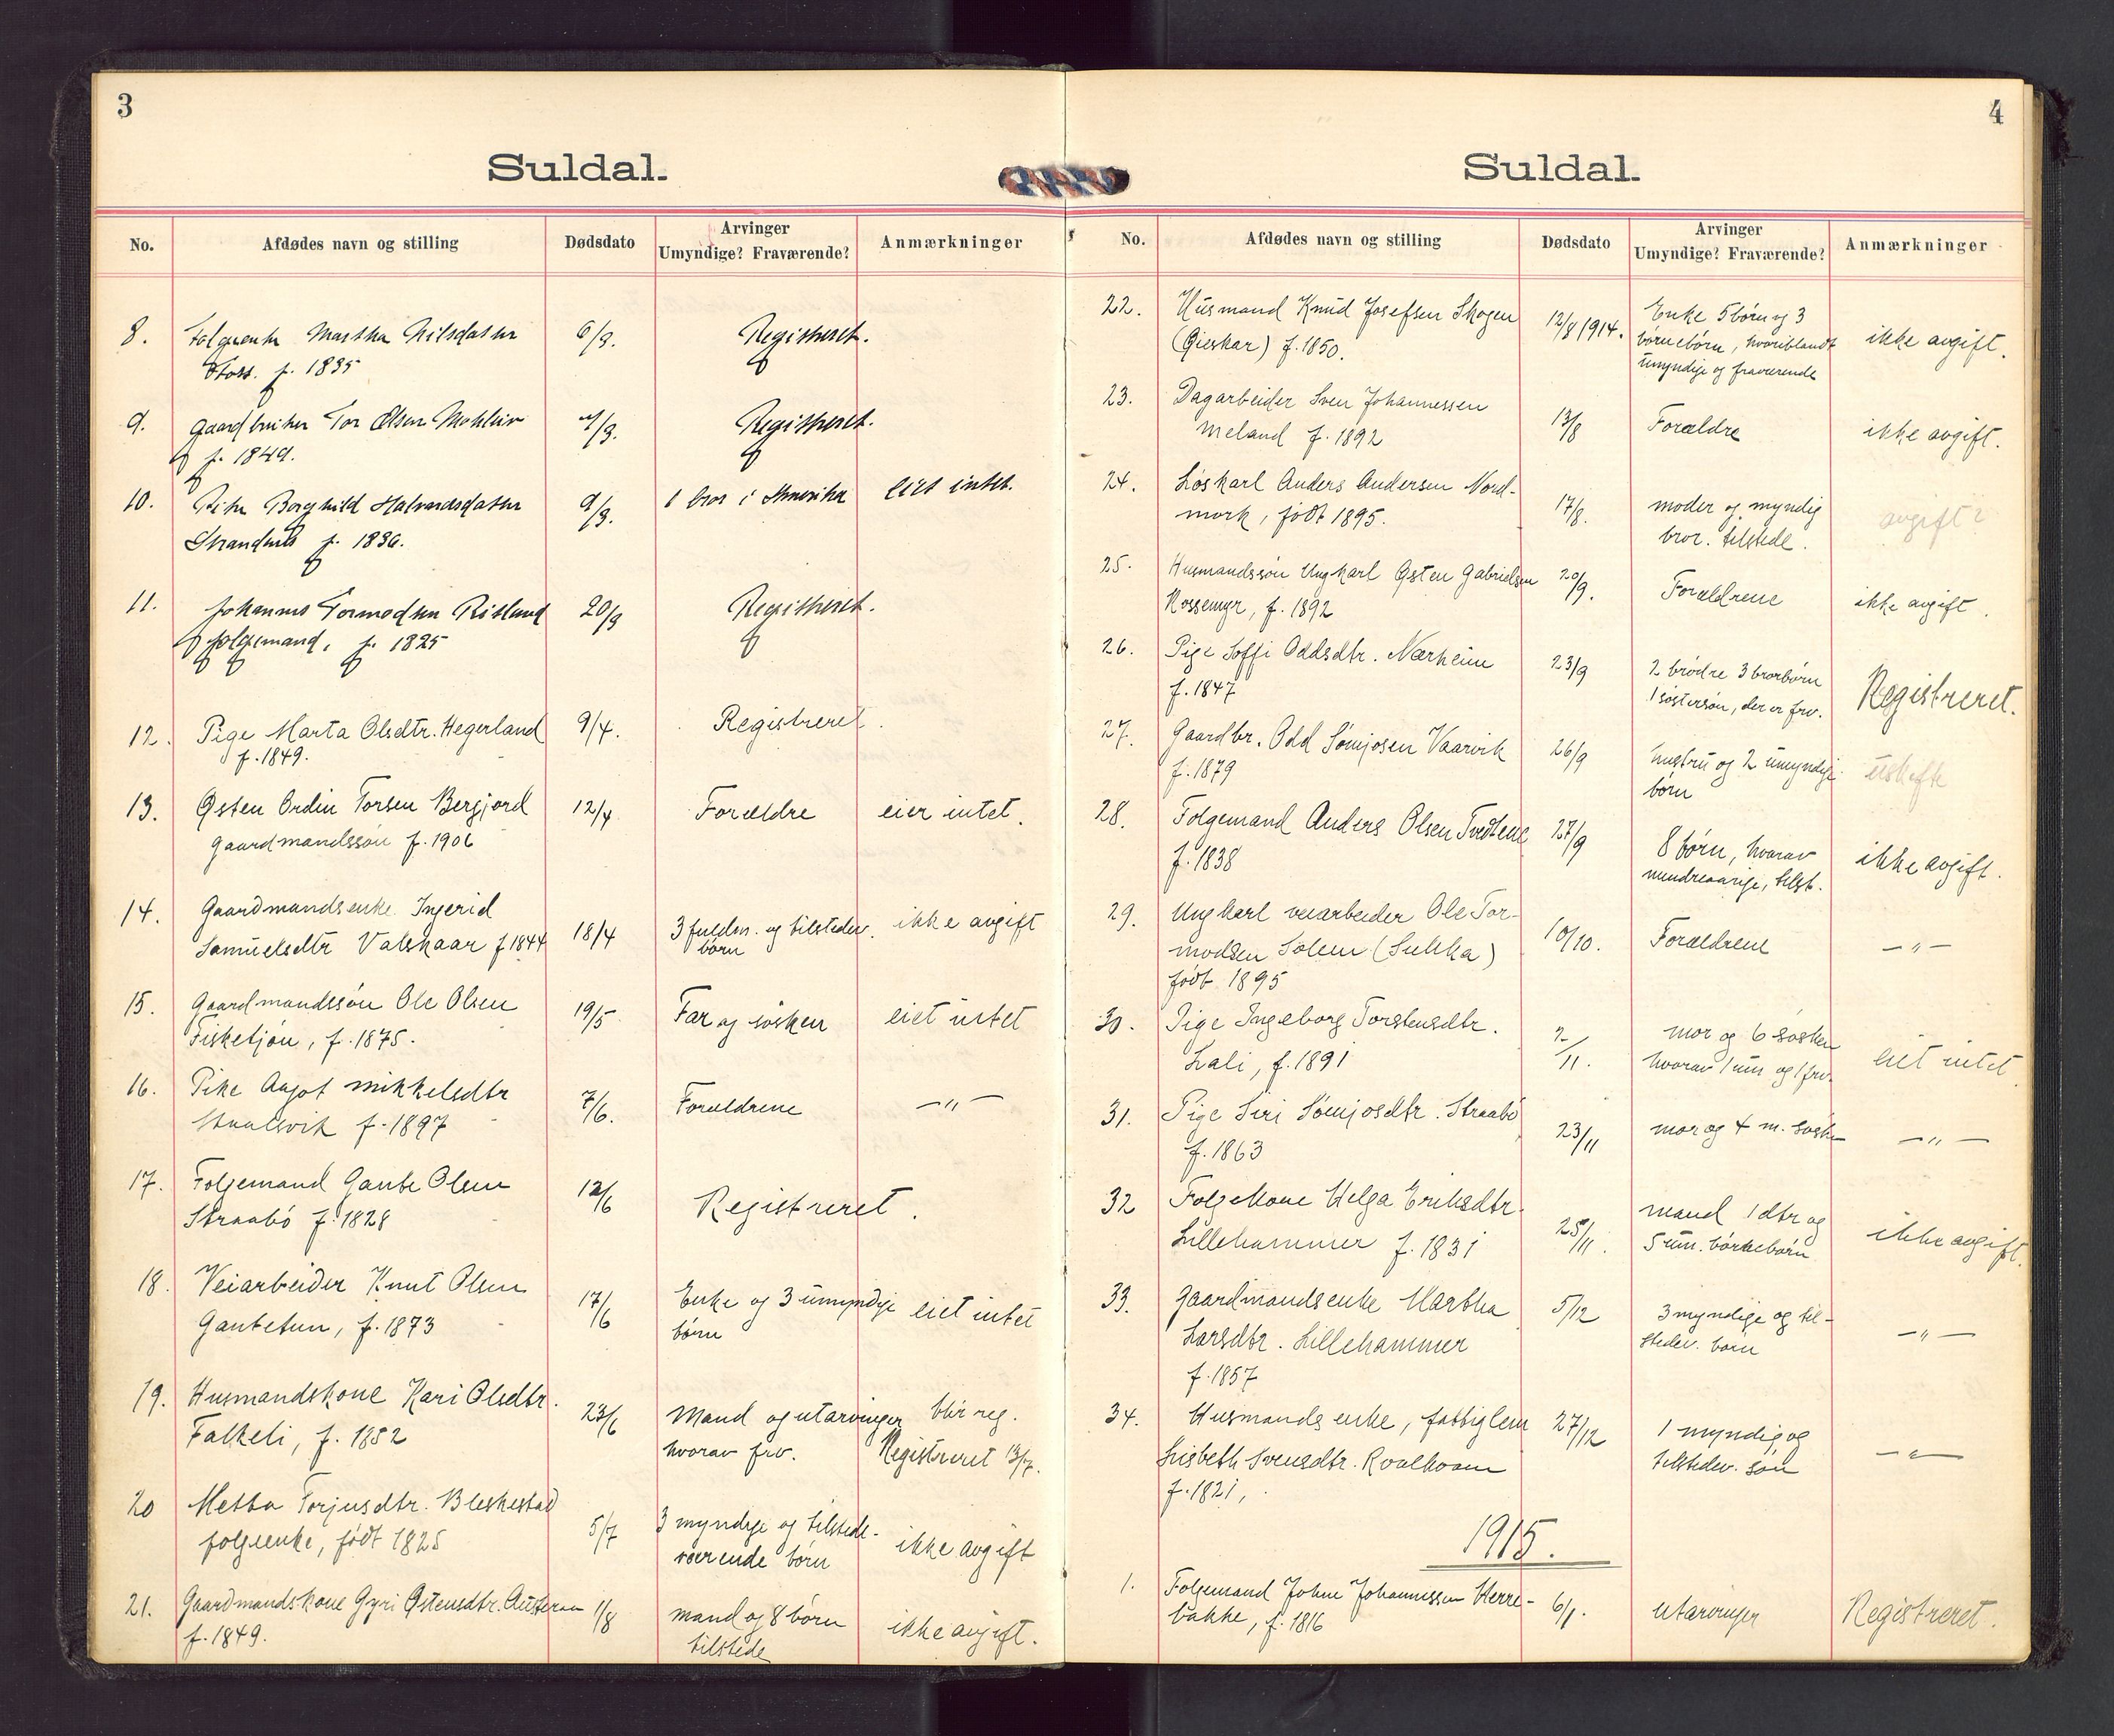 3
Suldal.
No. Afdødes navn og stilling Dødsdato Arvinger Umyndige? Fraværende? Anmærkninger
8. Folgeenke Martha Nilsdatter 6/3. Registreret.
f. 1835
9. Gaardbruker Tor Olsen Mehlein 7/3. Registreret.
f. 1849.
10. Pike Borghild Halvardsdatter 9/3. 1 bror i Amerika eiet intet.
f. 1836.
11. Johannes Tormodsen Risland 20/3 Registreret.
folgemand. f. 1825
12. Pige Marta Olsdtr. Hegerland 9/4. Registreret.
f. 1849.
13. Østen Ordin Torsen Bergjord 12/4 Forældre eier intet.
gaardmandssøn f. 1906
14. Gaardmandsenke Ingerid 18/4 3 fuldm. og tilstedev. ikke avgift
Samuelsdtr Valskaar f 1844 børn
15. Gaardmandssøn Ole Olsen 19/5 Far og søsken eiet intet
Fisketjøn, f. 1875.
16. Pike Aagot Mikkelsdtr 7/6. Forældrene — " —
f. 1897
17. Folgemand Gaute Olsen 12/6 Registreret.
Straabø f. 1828
18. Veiarbeider Knut Olsen 17/6 Enke og 3 umyndige eiet intet
Gautetun, f. 1873 børn
19. Husmandskone Kari Olsdtr. 23/6 Mand og utarvinger blir reg.
Falkeli, f. 1852 hvorav frv. Registreret 13/7.
20 Metta Torjusdtr. Bleskestad 5/7 3 myndige og tilstede-
folgeenke, født 1825 værende børn ikke avgift
21. Gaardmandskone Gyri Østensdtr. 1/8 mand og 8 børn ikke avgift.
f. 1849. tilstede
4
Suldal.
No. Afdødes navn og stilling Dødsdato Arvinger Umyndige? Fraværende? Anmærkninger
22. Husmand Knud Josefsen Skogen 12/8 1914. Enke 5 børn og 3
(Gieskar) f. 1850. børnebørn, hvoriblandt ikke avgift.
umyndige og fraværende
23. Dagarbeider Sven Johannessen 13/8 Forældre ikke avgift.
Meland f. 1892
24. Løskarl Anders Andersen Nord- 17/8. moder og myndig avgift?
mork, født 1895. bror. tilstede.
25. Husmandssøn Ungkarl Østen Gabrielsen 20/9. Forældrene ikke avgift.
Mossemyr, f. 1892
26. Pige Soffi Oddsdtr. Nærheim 23/9 2 brødre 3 brorbørn Registreret.
f. 1847 1 søstersøn, der er frv.
27. Gaardbr. Odd Sømjosen Vaarvik 26/9 hustru og 2 umyndige uskifte
f. 1879 børn
28. Folgemand Anders Olsen Tvedtene 27/9 8 børn, hvorav ikke avgift.
f. 1838 mindreaarige, tilst.
29. Ungkarl veiarbeider Ole Tor- 10/10. Forældrene — " —
modsen Solem (Sukka)
født 1895
30. Pige Ingeborg Torstensdtr. 2/11. mor og 6 søsken eiet intet.
Lali, f. 1891 hvorav 1 um og 1 frv.
31. Pige Siri Sømjosdtr. Straabø 23/11 mor og 4 m. søsken — " —
f. 1863
32 Folgekone Helga Eriksdtr. 25/11. mand 1 dtr og
Lillehammer f. 1831 5 um. børnebørn ikke avgift.
33. Gaardmandsenke Martha 5/12 3 myndige og til- — " —
Larsdtr. Lillehammer stedev. børn
f. 1857
34. Husmandsenke, fattiglem 27/12 1 myndig og — " —
Lisbeth Svensdtr. Roalkvam tilstedev. søn
f. 1821,
1915.
1. Folgemand John Johannessen Herre- 6/1. utarvinger Registreret.
bakke, f. 1816